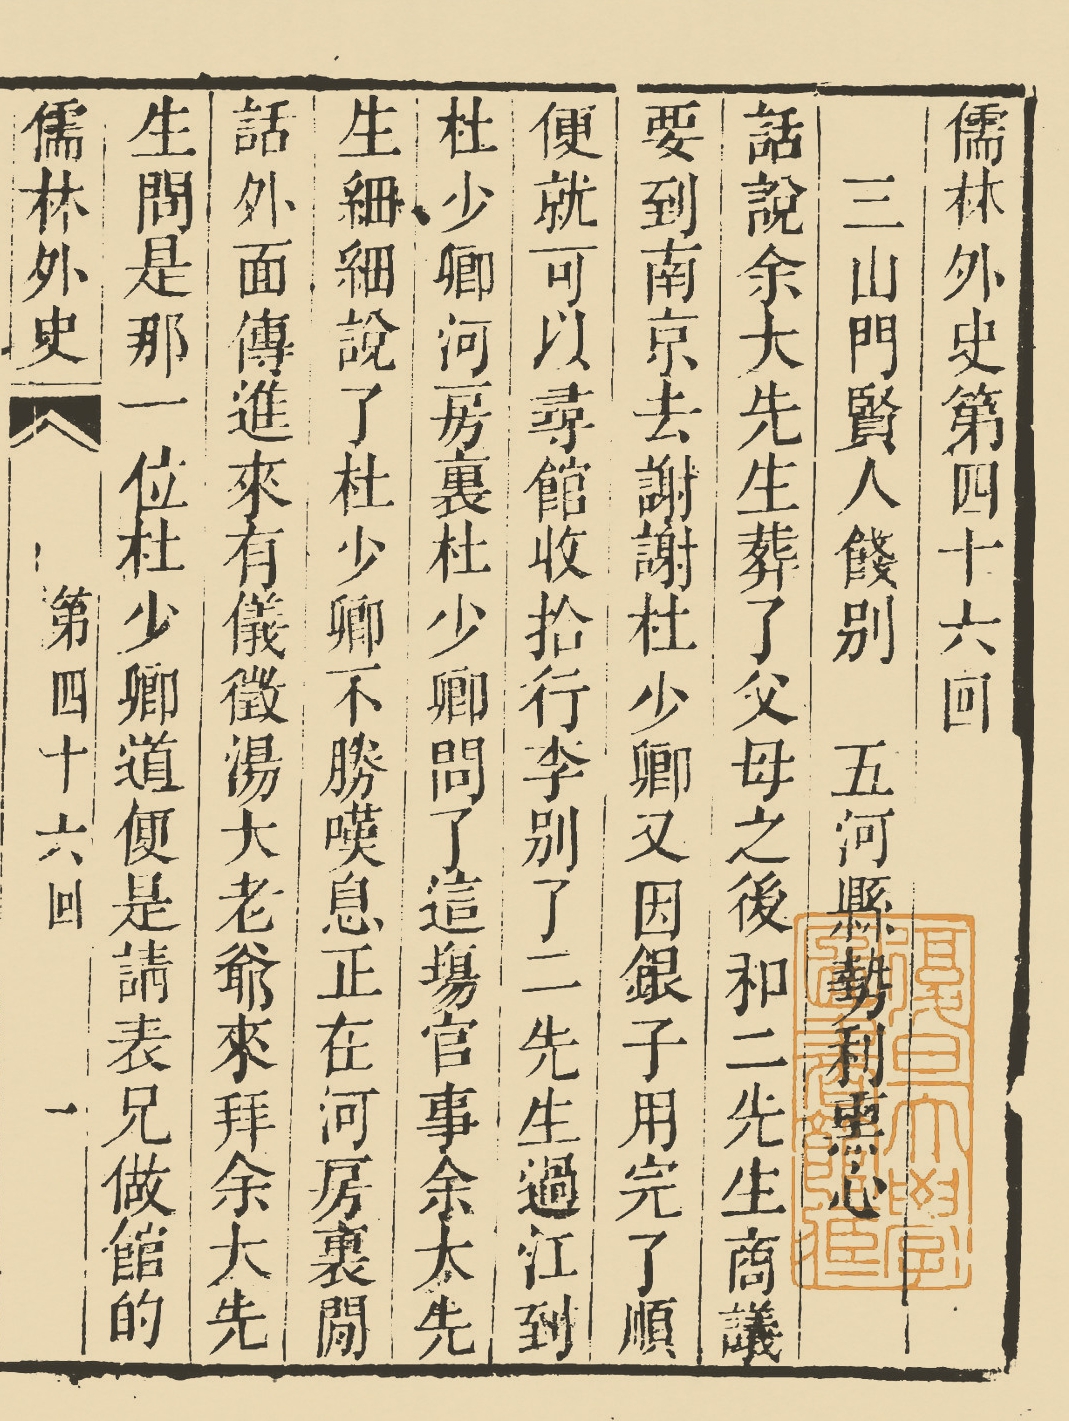 儒林外史第四十六回
三山門賢人餞別　五河縣勢利熏心
話說余大先生葬了父母之後和二先生商議
要到南京去謝謝杜少卿又因銀子用完了順
便就可以尋館收拾行李別了二先生過江到
杜少卿河房裏杜少卿問了這場官事余大先
生細細說了杜少卿不勝嘆息正在河房裏閒
話外面傳進來有儀徵湯大老爺來拜余大先
生問是那一位杜少卿道便是請表兄做館的
儒林外史　第四十六回　一